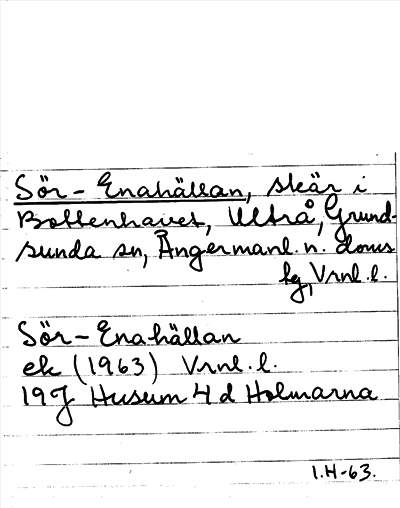 Sör-Enahällan, skär i
Bottenhavet, Ultrå, Grund-
sunda sn, Ångermanl. n. doms
lg, Vrnl. l.
Sör-Enahällan
ek (1963) Vrnl. l.
19J Husum 4 d Holmarna
I.H-63.